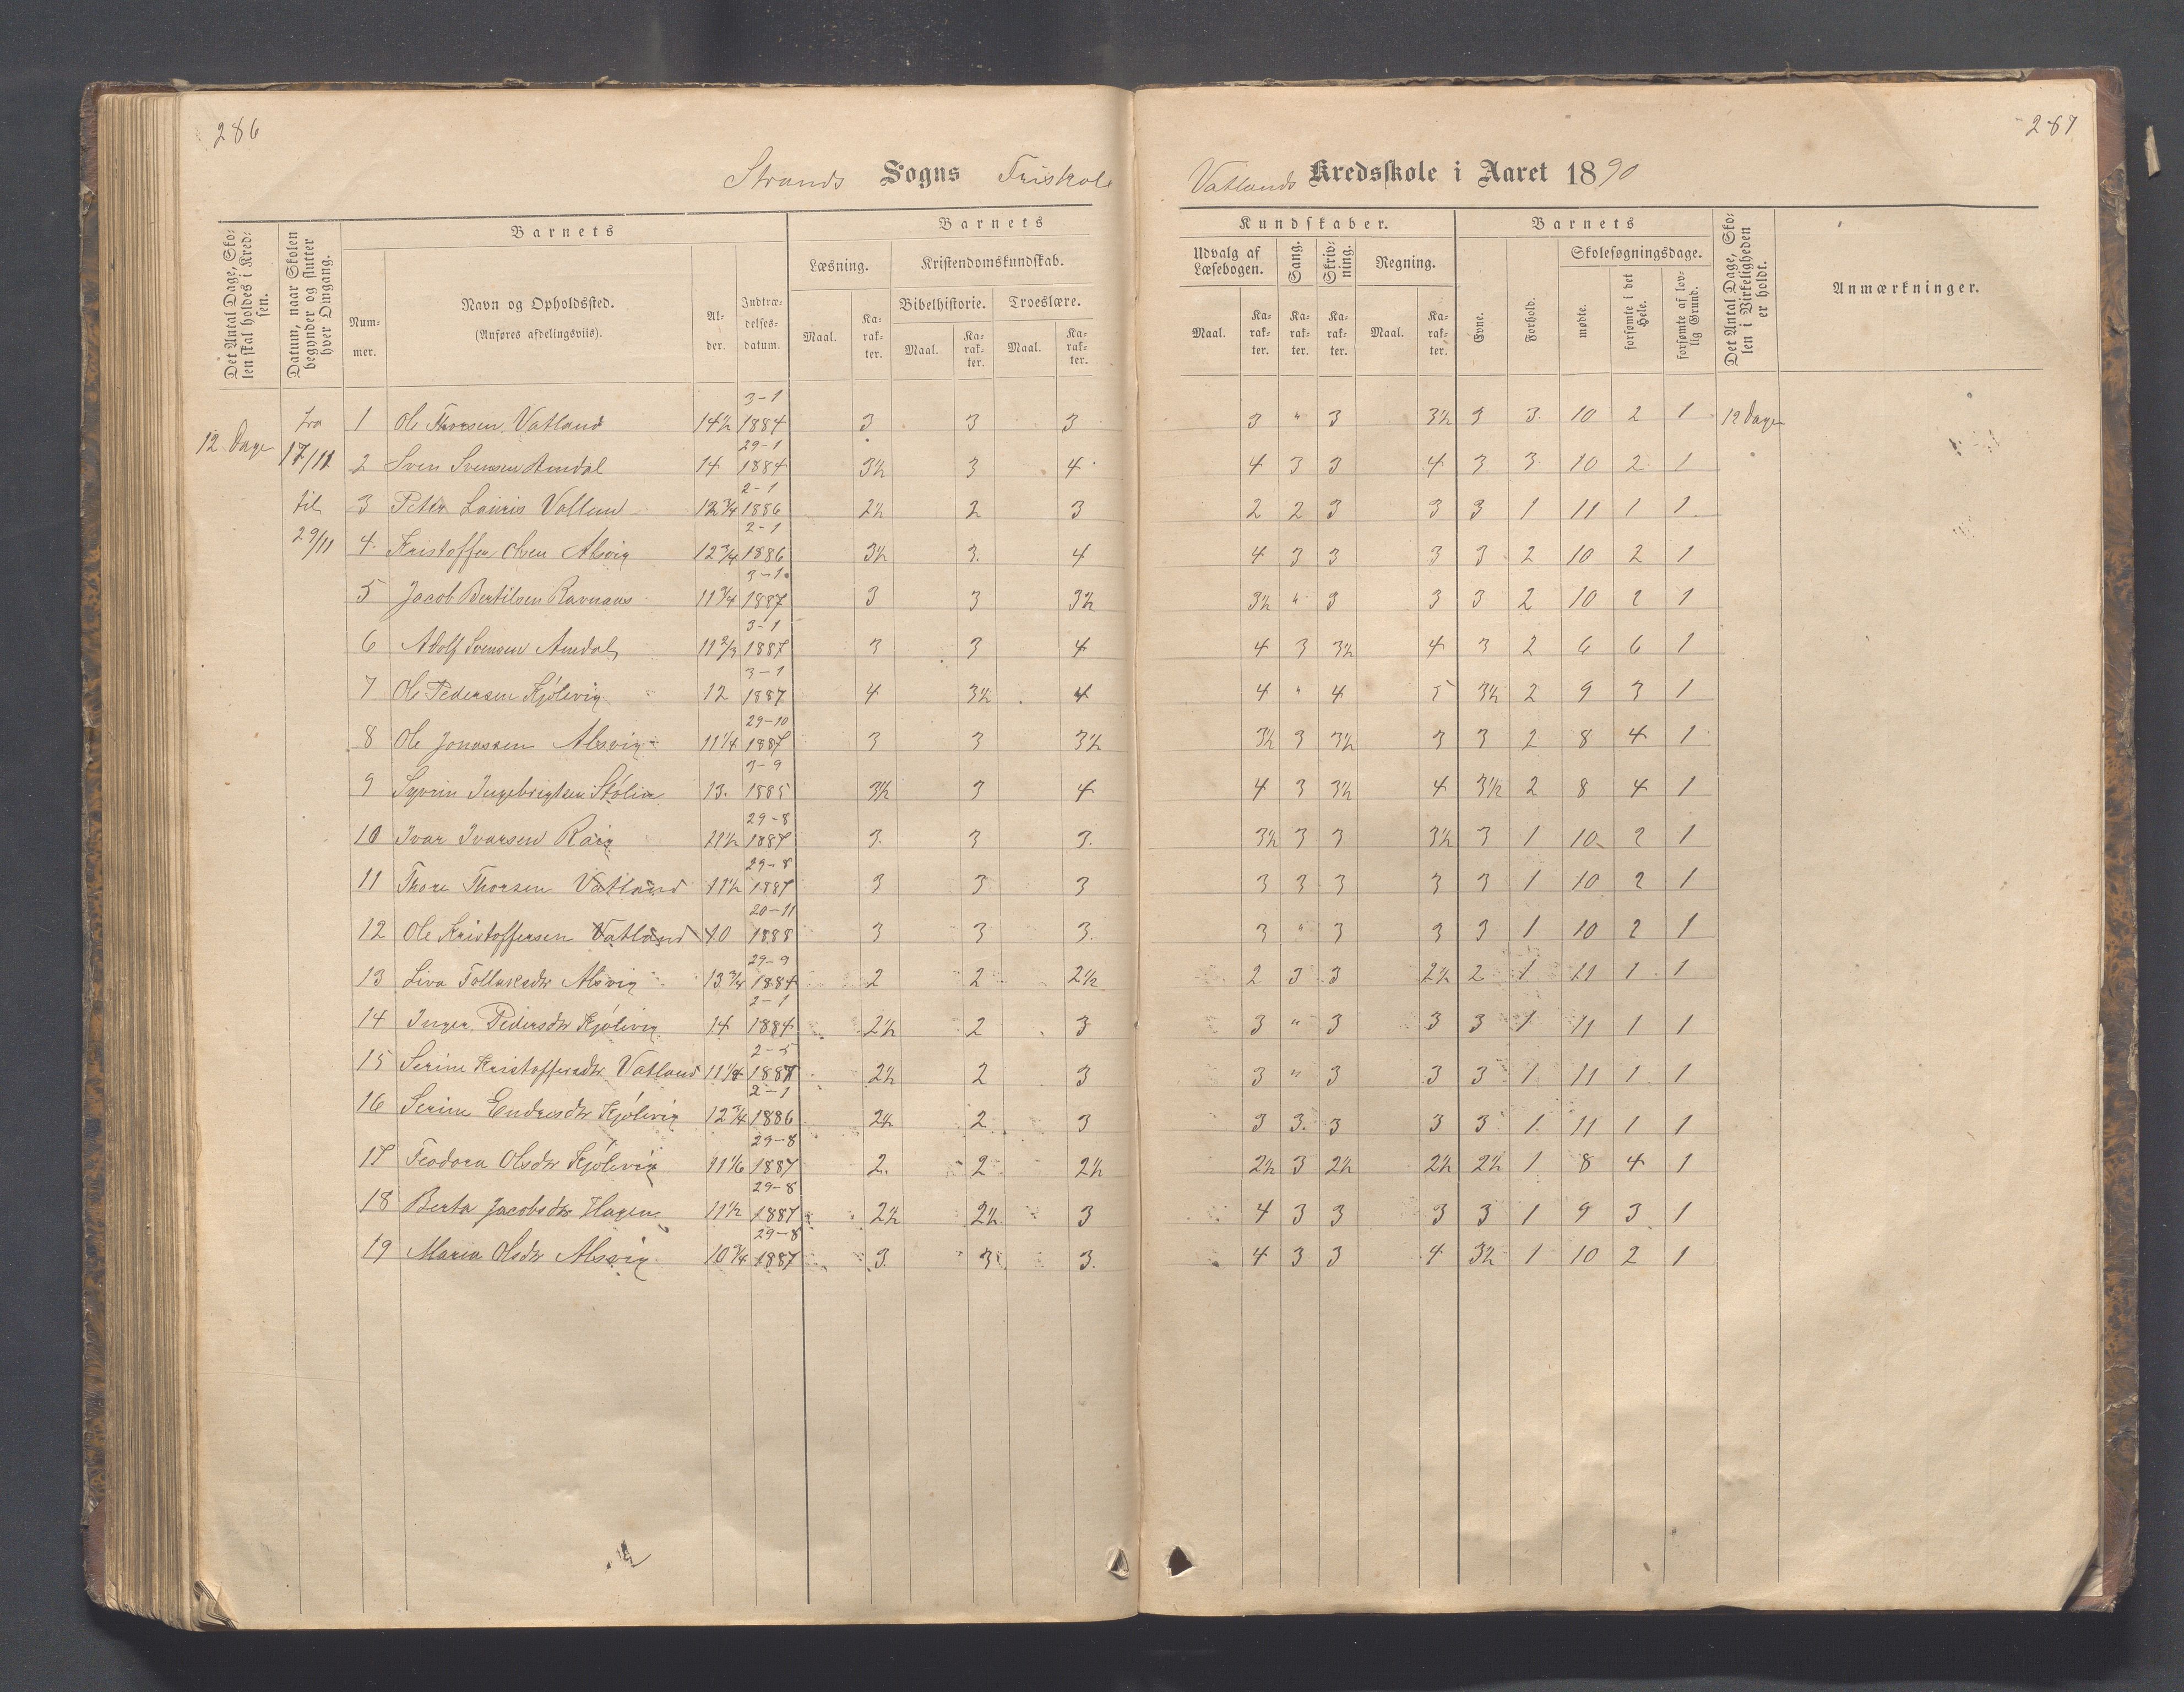 286
287
Strands Sogns Friskole
Vatlands Kredsskole i Aaret 1890
Det Antal Dage, Skolen skal holdes i Kredsen.
Datum, naar Skolen begynder og slutter hver Omgang.
Barnets
Nummer.
Navn og Opholdssted.
(Anføres afdelingsviis).
Alder.
Indtrædelsesdatum.
Barnets
Læsning.
Kristendomskundskab.
Bibelhistorie.
Troeslære.
Maal.
Karakter.
Maal.
Karakter.
Maal.
Karakter.
Kundskaber.
Udvalg af Læsebogen.
Sang.
Skrivning.
Regning.
Maal.
Karakter.
Karakter.
Karakter.
Maal.
Karakter.
Barnets
Evne.
Forhold.
Skolesøgningsdage.
mødte.
forsømte i det Hele.
forsømte af lovlig Grund.
Det Antal Dage, Skolen i Virkeligheden er holdt.
Anmærkninger.
12 Dage
fra 17/11 til 29/11
1 Ole Thorsen Vatland 14½ 3-1 1884 3 3 3 3 " 3 3½ 3 3 10 2 1 12 Dage
2 Sven Svensen Amdal 14 29-1 1884 3½ 3 4 4 3 3 4 3 3 10 2 1
3 Peter Lauris 12¾ 2-1 1886 2½ 2 3 2 2 3 3 3 1 11 1 1
4 Kristoffer Olsen Alsvig 12¾ 2-1 1886 3½ 3 4 4 3 3 3 3 2 10 2 1
5 Jacob Bertilsen Ravnaas 11¾ 3-1 1887 3 3 3½ 3½ " 3 3 3 2 10 2 1
6 Adolf Svensen Amdal 11 2/3 3-1 1887 3 3 4 4 3 3½ 4 3 2 6 6 1
7 Ole Pedersen Kjølevig 12 3-1 1887 4 3½ 4 4 " 4 5 3½ 2 9 3 1
8 Ole Jonassen Alsvig 11¼ 29-10 1887 3 3 3½ 3½ 3 3½ 3 3 2 8 4 1
9 Syvrin Ingebrigtsen Stølin 13. 3-9 1885 3½ 3 4 4 3 3½ 4 3½ 2 8 4 1
10 Ivar Ivarsen 11½ 29-8 1887 3. 3 3. 3½ 3 3 3½ 3 1 10 2 1
11 Thore Thorsen Vatland 11½ 29-8 1887 3 3 3 3 3 3 3 3 1 10 2 1
12 Ole Kristoffersen Vatland 10 20-11 1888 3 3 3. 3 " 3 3 3 1 10 2 1
13 Liva Tollaksdtr Alsvig 13¾ 29-9 1884 2 2 2½ 2 3 3 2½ 2 1 11 1 1
14 Inger Pedersdtr Kjølevig 14 2-1 1884 2½ 2 3 3 " 3 3 3 1 11 1 1
15 Serine Kristoffersdtr Vatland 11¼ 2-5 1887 2½ 2 3 3 " 3 3 3 1 11 1 1
16 Serine Endresdtr Kjølevig 12¾ 2-1 1886 2½ 2 3 3 3. 3 3 3 1 11 1 1
17 Teodora Olsdtr Kjølevig 11 1/6 29-8 1887 2. 2 2½ 2½ 3 2½ 2½ 2½ 1 8 4 1
18 Berta Jacobsdtr Hagen 11½ 29-8 1887 2½ 2½ 3 4 3 3 3 3 1 9 3 1
19 Maria Olsdtr Alsvig 10¾ 29-8 1887 3. 3 3. 4 3 3 4 3½ 1 10 2 1